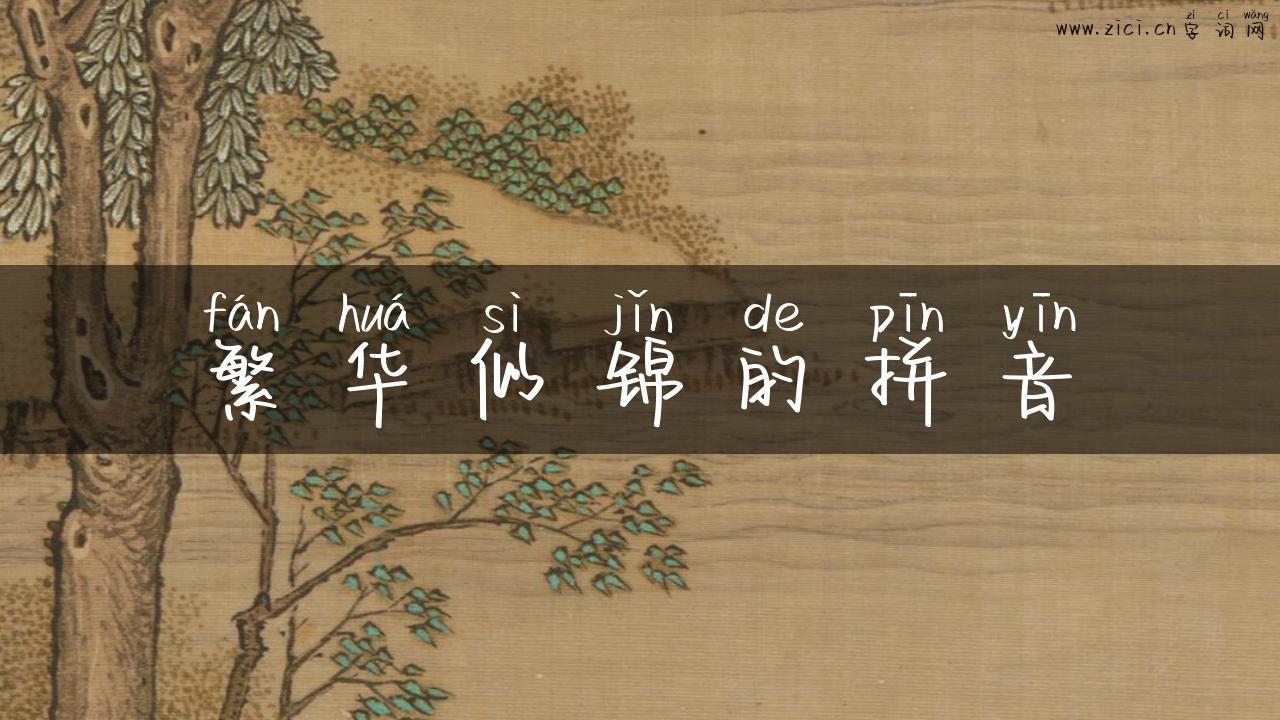 zì cí wǎng
www.zici.cn 字词网
fán huá sì jǐn de pīn yīn
繁华似锦的拼音